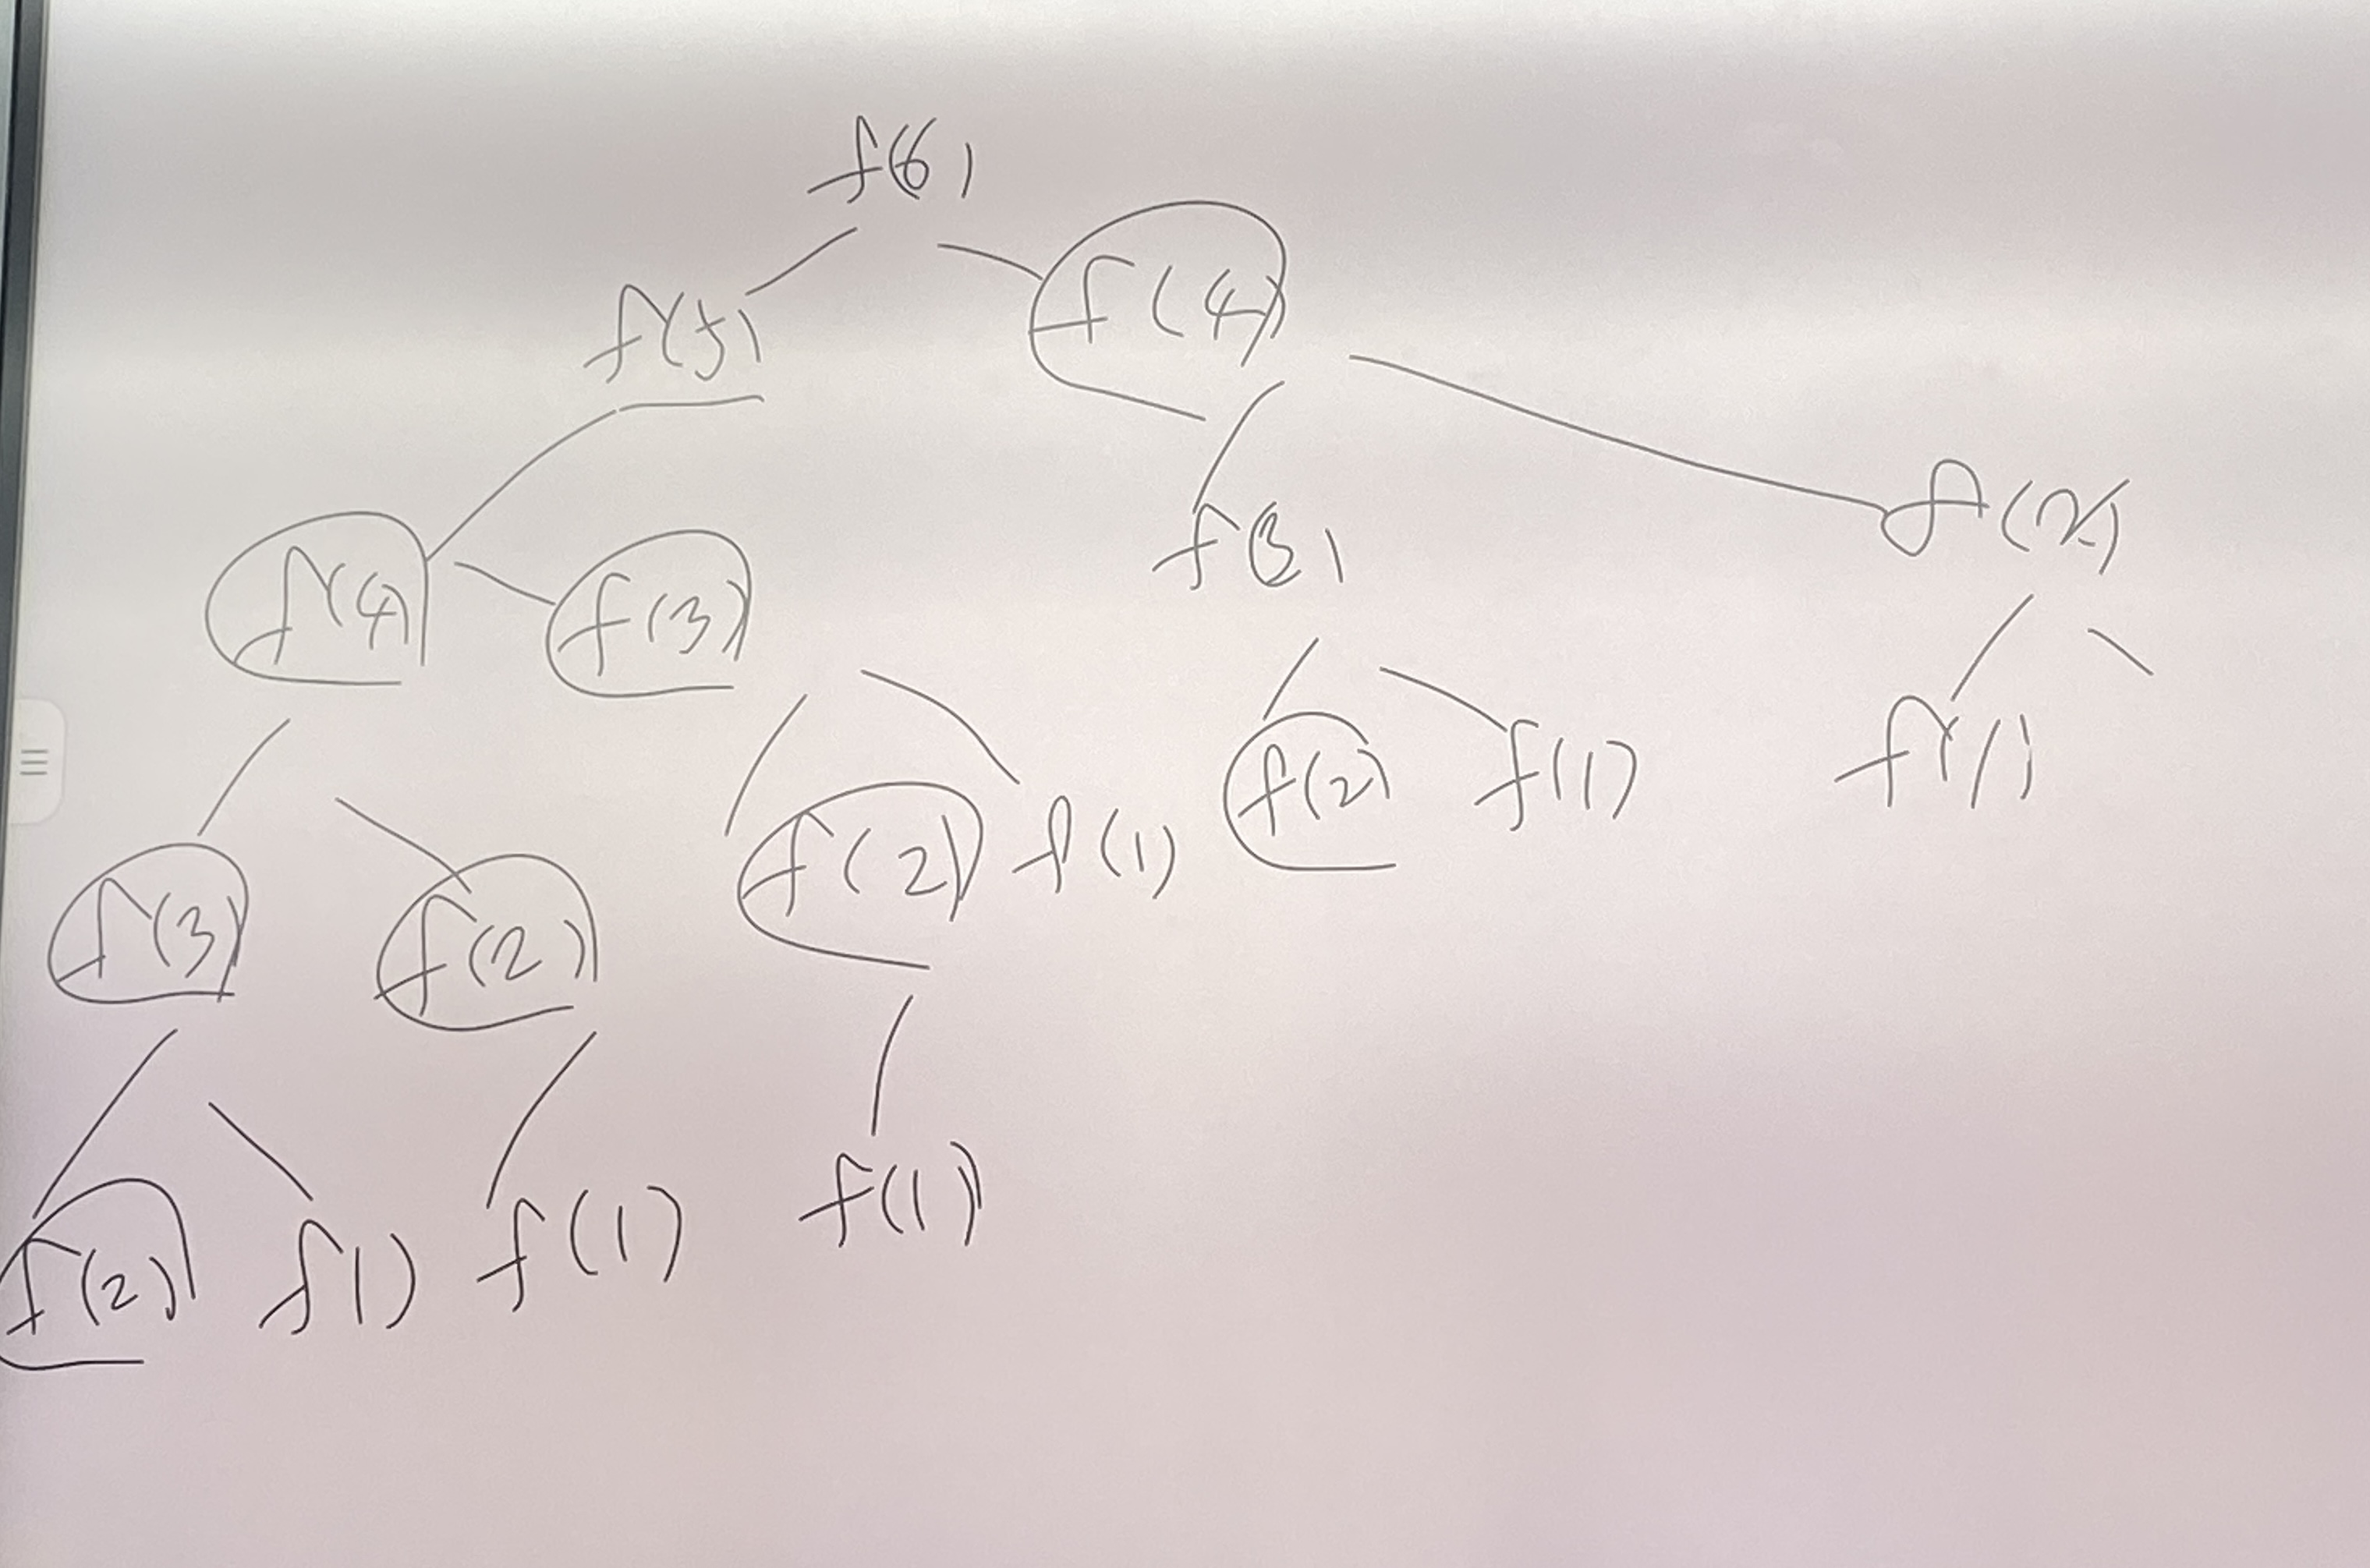 f(6)
f(5) f(4)
f(4) f(3) f(3) f(2)
f(3) f(2) f(2) f(1) f(2) f(1) f(1)
f(2) f1) f(1) f(1)